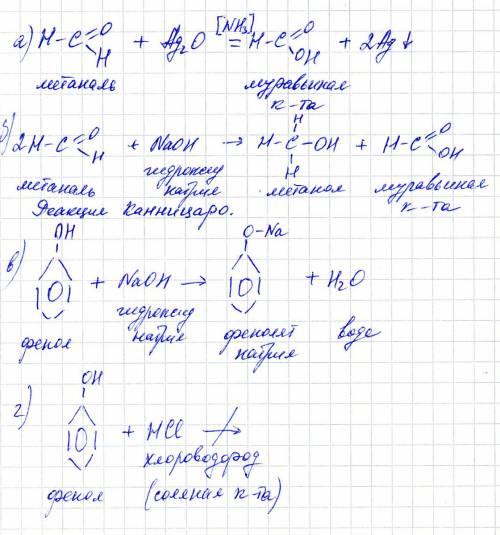 а) H-C=O H + Ag₂O [NH₃] = H-C=O OH + 2Ag↓
метаналь муравьиная к-та
б) 2H-C=O H + NaOH → H-C-OH H H + H-C=O OH
метаналь гидроксид натрия метанол муравьиная к-та
Реакция Канниццаро.
в) OH + NaOH → O-Na + H₂O
фенол гидроксид натрия фенолят натрия вода
г) OH + HCl ↛
хлороводород
фенол (соляная к-та)